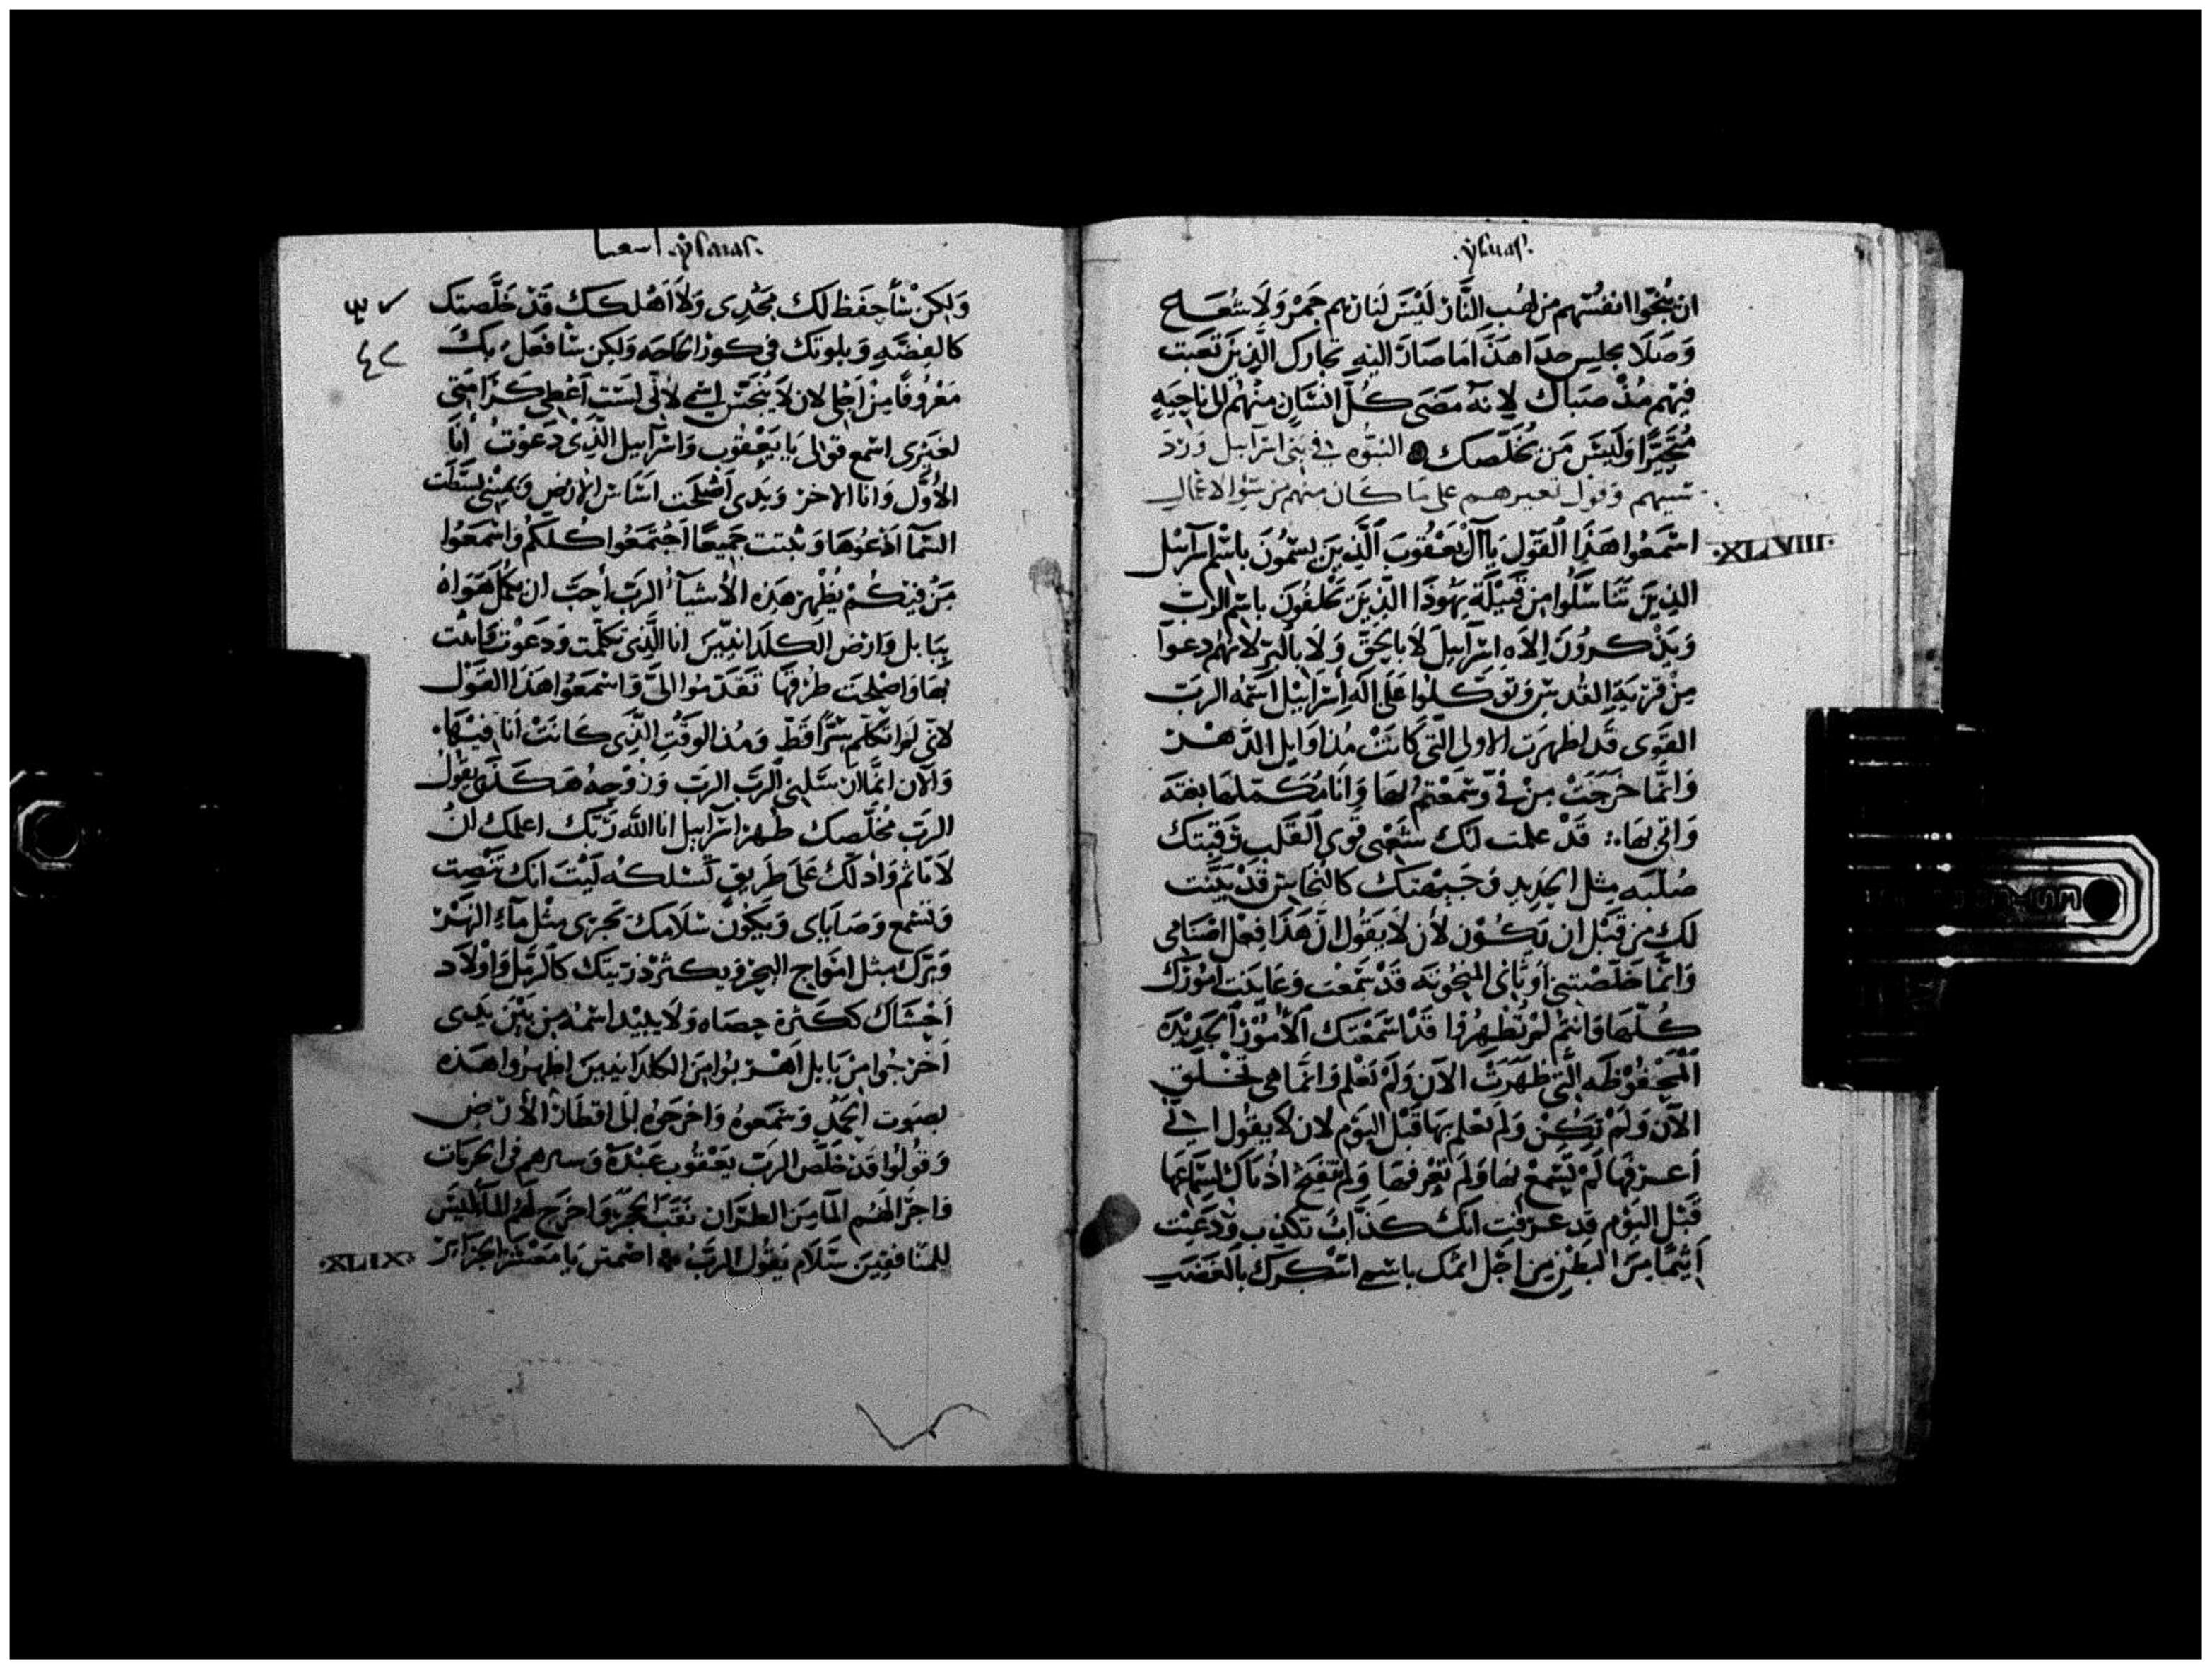 ysaias.
ان ينجوا انفسهم من لهب النار ليس لنا نهم جمر ولا شعـ
وصلا يجلس حدا هذا ما صار اليه تجارك الذين تعبت
فيهم مذ صباك لانه مضى كل انسان منهم الى ناحيه
متحيرا وليس من يخلصك النبوه في بني اسرائيل ورد
سبيهم وقول تعييرهم على ما كان منهم من سو الاعمال
XLVIII
اسمعوا هذا القول يا آل يعقوب الذين يسمون باسم اسرائيل
الذين تناسلوا من قبيلة يهوذا الذين يحلفون باسم الرب
ويذكرون الاه اسرائيل لا بالحق ولا بالبر لانهم دعوا
من قرية القدس وتوكلوا على اله اسرائيل اسمه الرب
القوى قد اظهرت الاولى التي كانت مذ اوايل الدهر
وانما خرجت من في وسمعتم بها وانا مكملها بغته
واتى بها قد علمت انك ستعصى قوى القلب رقبتك
صلبه مثل الحديد وجبهتك كالنحاس قد بينت
لك من قبل ان تكون لان لا يقول ان هذا فعل اصنامى
وانما خلصتني اوثانى المنحوته قد سمعت وعاينت امورك
كلها وانتم لم تظهروا قد اسمعتك الامور الجديده
المحفوظه التي ظهرت الآن ولم تعلم وانما هى تخلق
الآن ولم تكن ولم تعلم بها قبل اليوم لان لا يقول اني
اعرفها لم تسمع بها ولم تعرفها ولم تنفتح اذناك لسماعها
قبل اليوم قد عرفت انك كذاب تكذب ودعيت
اثيما من البطن من اجل اسمك باسمى استكبرك بالغضب
اسعيا ysaias.
ولكن سأحفظ لك مجدى ولا اهلكك قد خلصتك
كالفضه وبلوتك في كور الحاجه ولكن سافعل بك
معروفا من اجلى لان لا ينجس اسمى لاني لست اعطى كرامتى
لغيرى اسمع قولى يا يعقوب واسرائيل الذى دعوت انا
الاول وانا الاخر ويدى اصلحت اساس الارض ويمينى بسطت
السما ادعوها وثبتت جميعا اجتمعوا كلكم واسمعوا
من فيكم يظهر هذه الأشياء الرب احب ان يكمل هواه
ببابل وارض الكلدانيين انا الذى تكلمت ودعوت واتيت
بها واصلحت طرقها تقدموا الى واسمعوا هذا القول
لانى لم اتكلم سرا قط ومذ الوقت الذى كانت أنا فيها
والآن انما ارسلني الرب الرب وروحه هكذا يقول
الرب مخلصك طهر اسرائيل انا الله ربك اعلمك ان
لا تاثم وادلك على طريق تسلكه ليت انك تنصت
وتسمع وصاياى ويكون سلامك تجرى مثل ماء النهر
وبرك مثل امواج البحر ويكثر ذريتك كالرمل واولاد
احشاك ككثرة حصاه ولا يبيد اسمه من بين يدى
اخرجوا من بابل اهربوا من الكلدانيين اظهروا هذه
بصوت الحمد وسمعوه واخرجوه الى اقطار الأرض
وقولوا قد خلص الرب يعقوب عبده وسيرهم فى الخربات
فاجرا لهم الما من الطران نقب الحجر واخرج لهم الما ليس
للمنافقين سلام يقول الرب اصمتى يا معشر الجزاير
XLIX